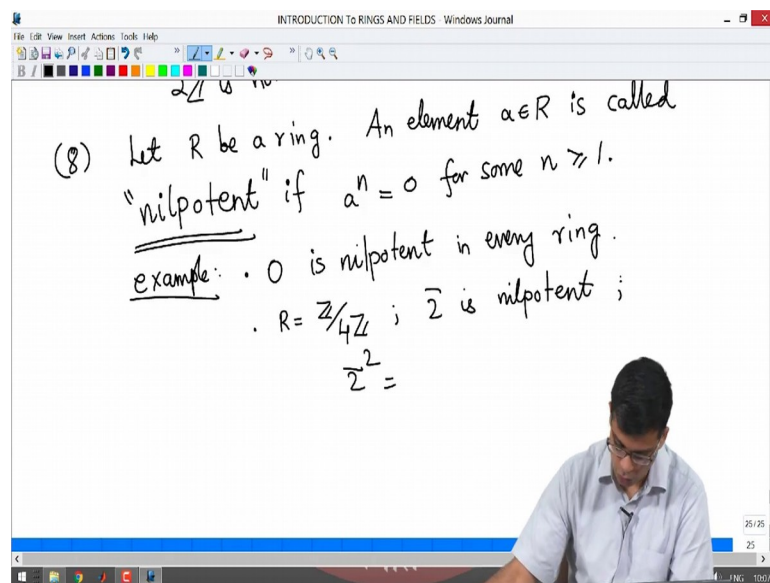 INTRODUCTION To RINGS AND FIELDS - Windows Journal
File Edit View Insert Actions Tools Help
B I
(8) Let R be a ring. An element a∈R is called
"nilpotent" if aⁿ = 0 for some n ≥ 1.
example: · 0 is nilpotent in every ring.
· R = ℤ/4ℤ ; 2̄ is nilpotent ;
2̄² =
25/25
25